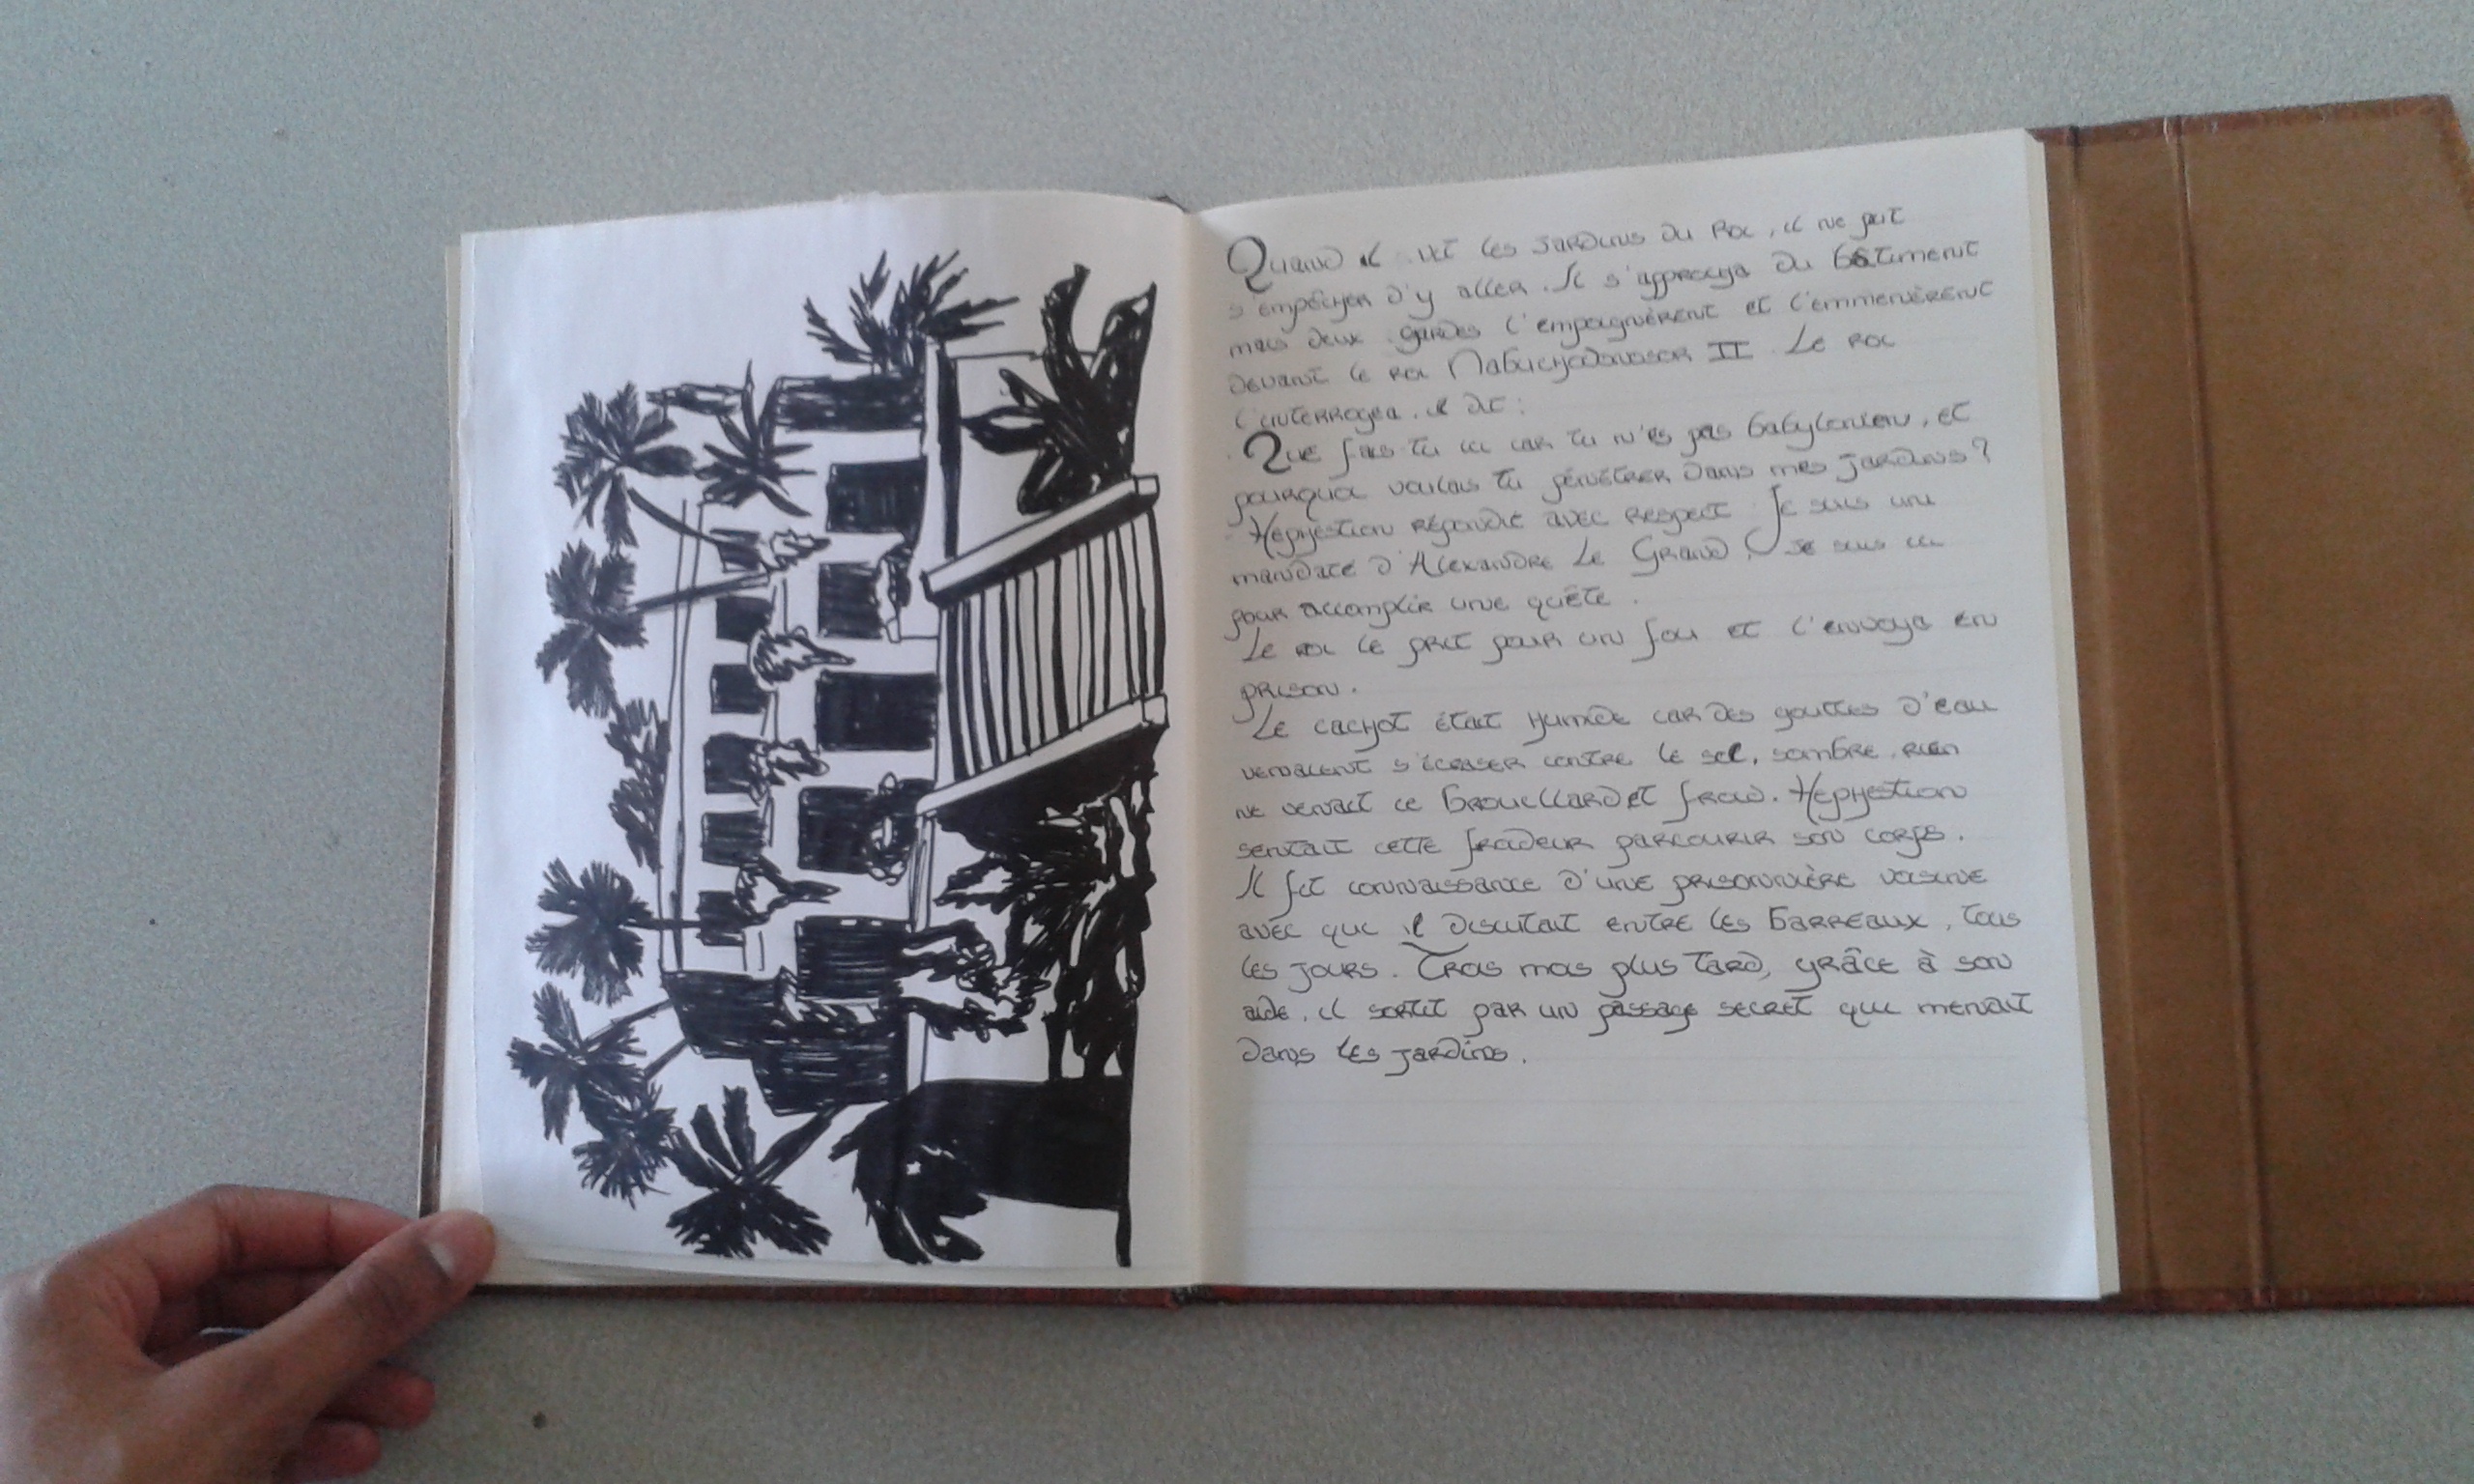 Quand il vit les jardins du Roi, il ne put
s'empêcher d'y aller. Il s'approcha du bâtiment
mais deux gardes l'empoignèrent et l'emmenèrent
devant le roi Nabuchodonosor II. Le roi
l'interrogea, il dit :
Que fais tu ici car tu n'es pas babylonien, et
pourquoi voulais tu pénétrer dans mes jardins ?
Hephestion répondit avec respect Je suis un
mandaté d'Alexandre Le Grand, Je suis ici
pour accomplir une quête.
Le roi le prit pour un fou et l'envoya en
prison.
Le cachot était humide car des gouttes d'eau
venaient s'écraser contre le sol, sombre, rien
ne venait ce brouillard et froid. Hephestion
sentait cette froideur parcourir son corps.
Il fit connaissance d'une prisonnière voisine
avec qui il discutait entre les barreaux, tous
les jours. Trois mois plus tard, grâce à son
aide, il sortit par un passage secret qui menait
dans les jardins.